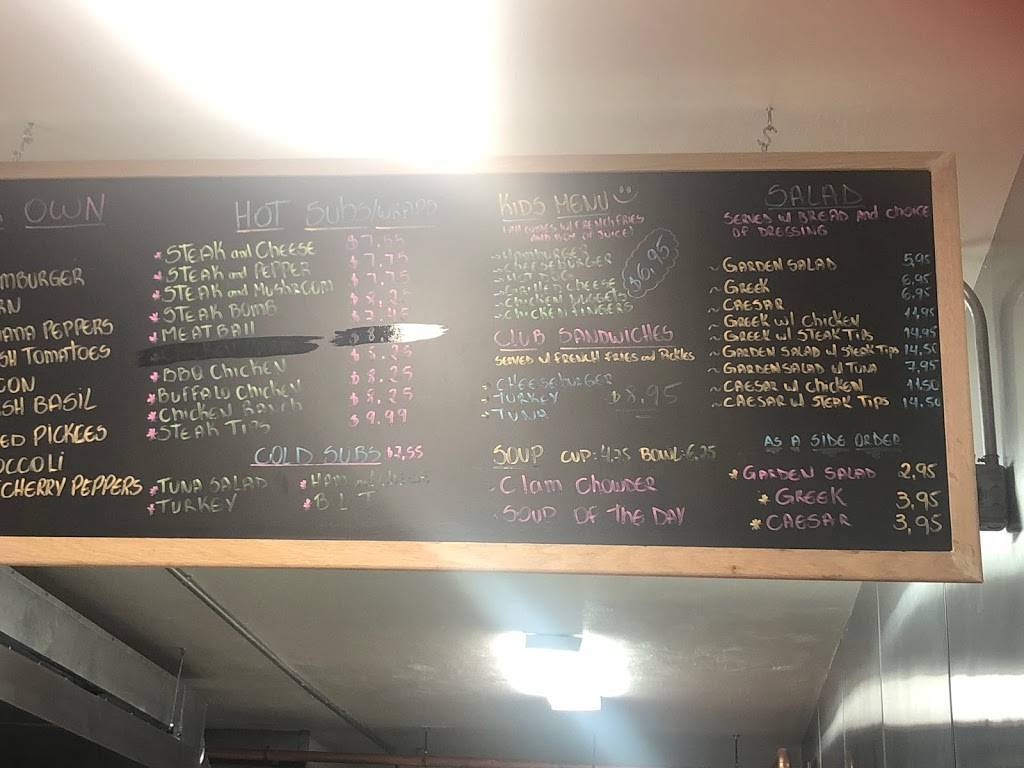 OWN
MBURGER
RN
ANA PEPPERS
SH TOMATOES
CON
SH BASIL
ED PICKLES
OCCOLI
CHERRY PEPPERS
HOT SUBS/WRAPS
STEAK and CHEESE
STEAK and PEPPER $7.75
STEAK and MUSHROOM $7.75
STEAK BOMB
MEATBALL
BBQ CHICKEN $8.25
BUFFALO CHICKEN $8.25
CHICKEN RANCH $8.25
STEAK TIPS $9.99
COLD SUBS
TUNA SALAD
TURKEY
HAM
B L T
KIDS MENU
$6.95
HAMBURGER
CHEESEBURGER
GRILLED CHEESE
CHICKEN NUGGETS
CHICKEN FINGERS
CLUB SANDWICHES
SERVED W/ FRENCH FRIES and PICKLES
CHEESEBURGER
TURKEY $8.95
TUNA
SOUP CUP: 4.25 BOWL: 6.25
Clam CHOWDER
SOUP OF THE DAY
SALAD
SERVED W/ BREAD AND CHOICE
OF DRESSING
GARDEN SALAD 5.95
GREEK 6.95
CAESAR 6.95
GREEK W/ CHICKEN 11.95
GREEK W/ STEAK TIPS 14.95
GARDEN SALAD W/ STEAK TIPS 14.50
GARDEN SALAD W/ TUNA 7.95
CAESAR W/ CHICKEN 11.50
CAESAR W/ STEAK TIPS 14.50
AS A SIDE ORDER
GARDEN SALAD 2,95
GREEK 3,95
CAESAR 3,95